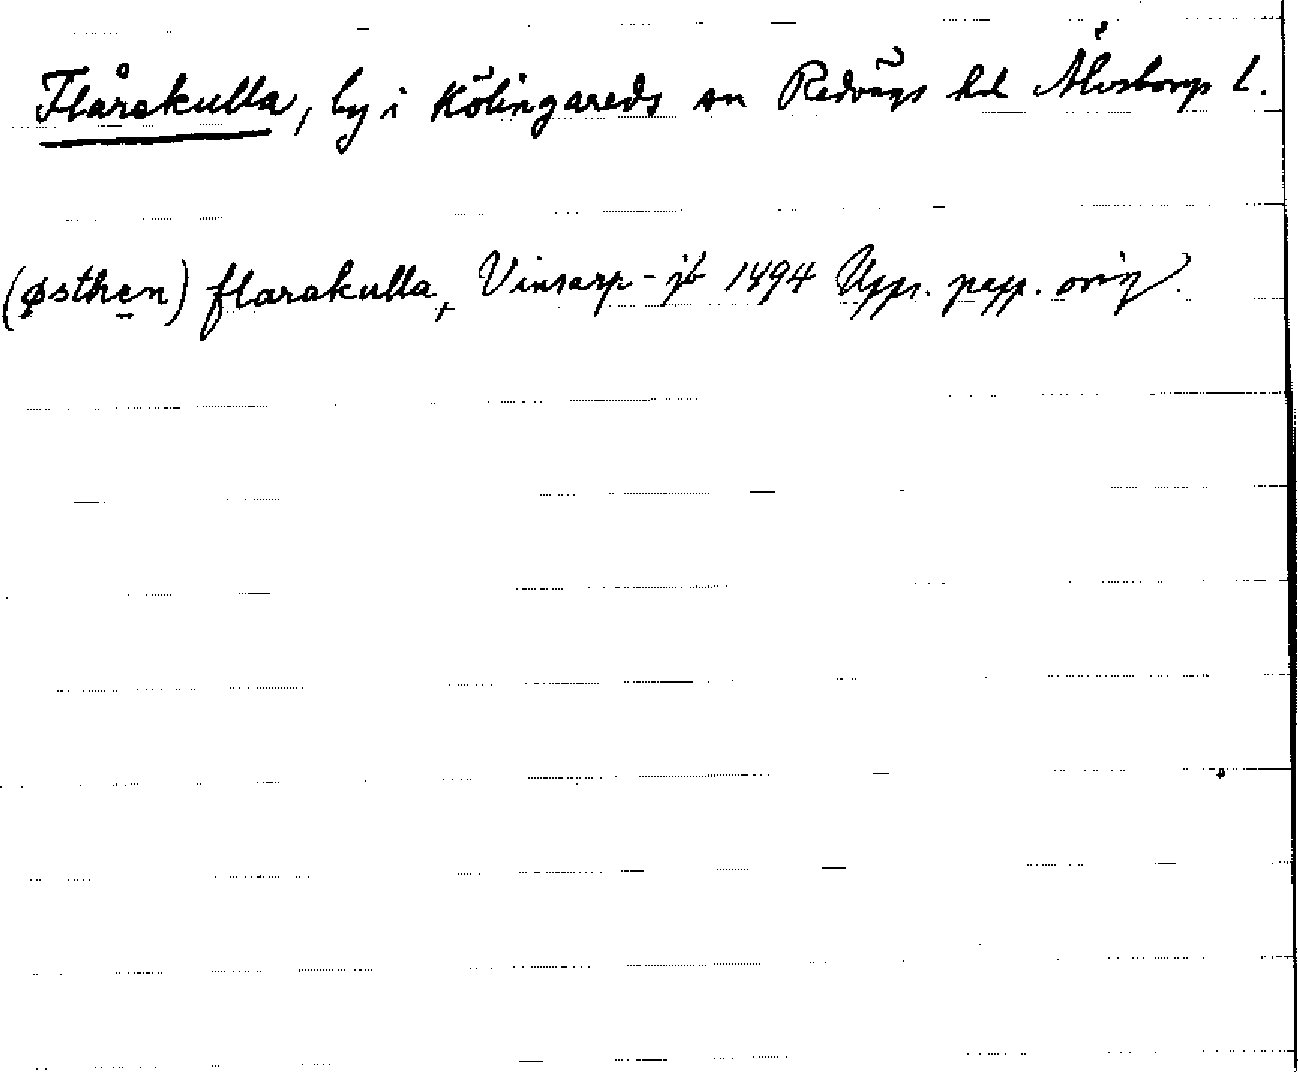 Flårakulla, by i Kölingareds sn Redvägs hd Älvsborgs l.
(østhen) flarakulla, Vinsarp-jb 1494 Upps. papp. orig.